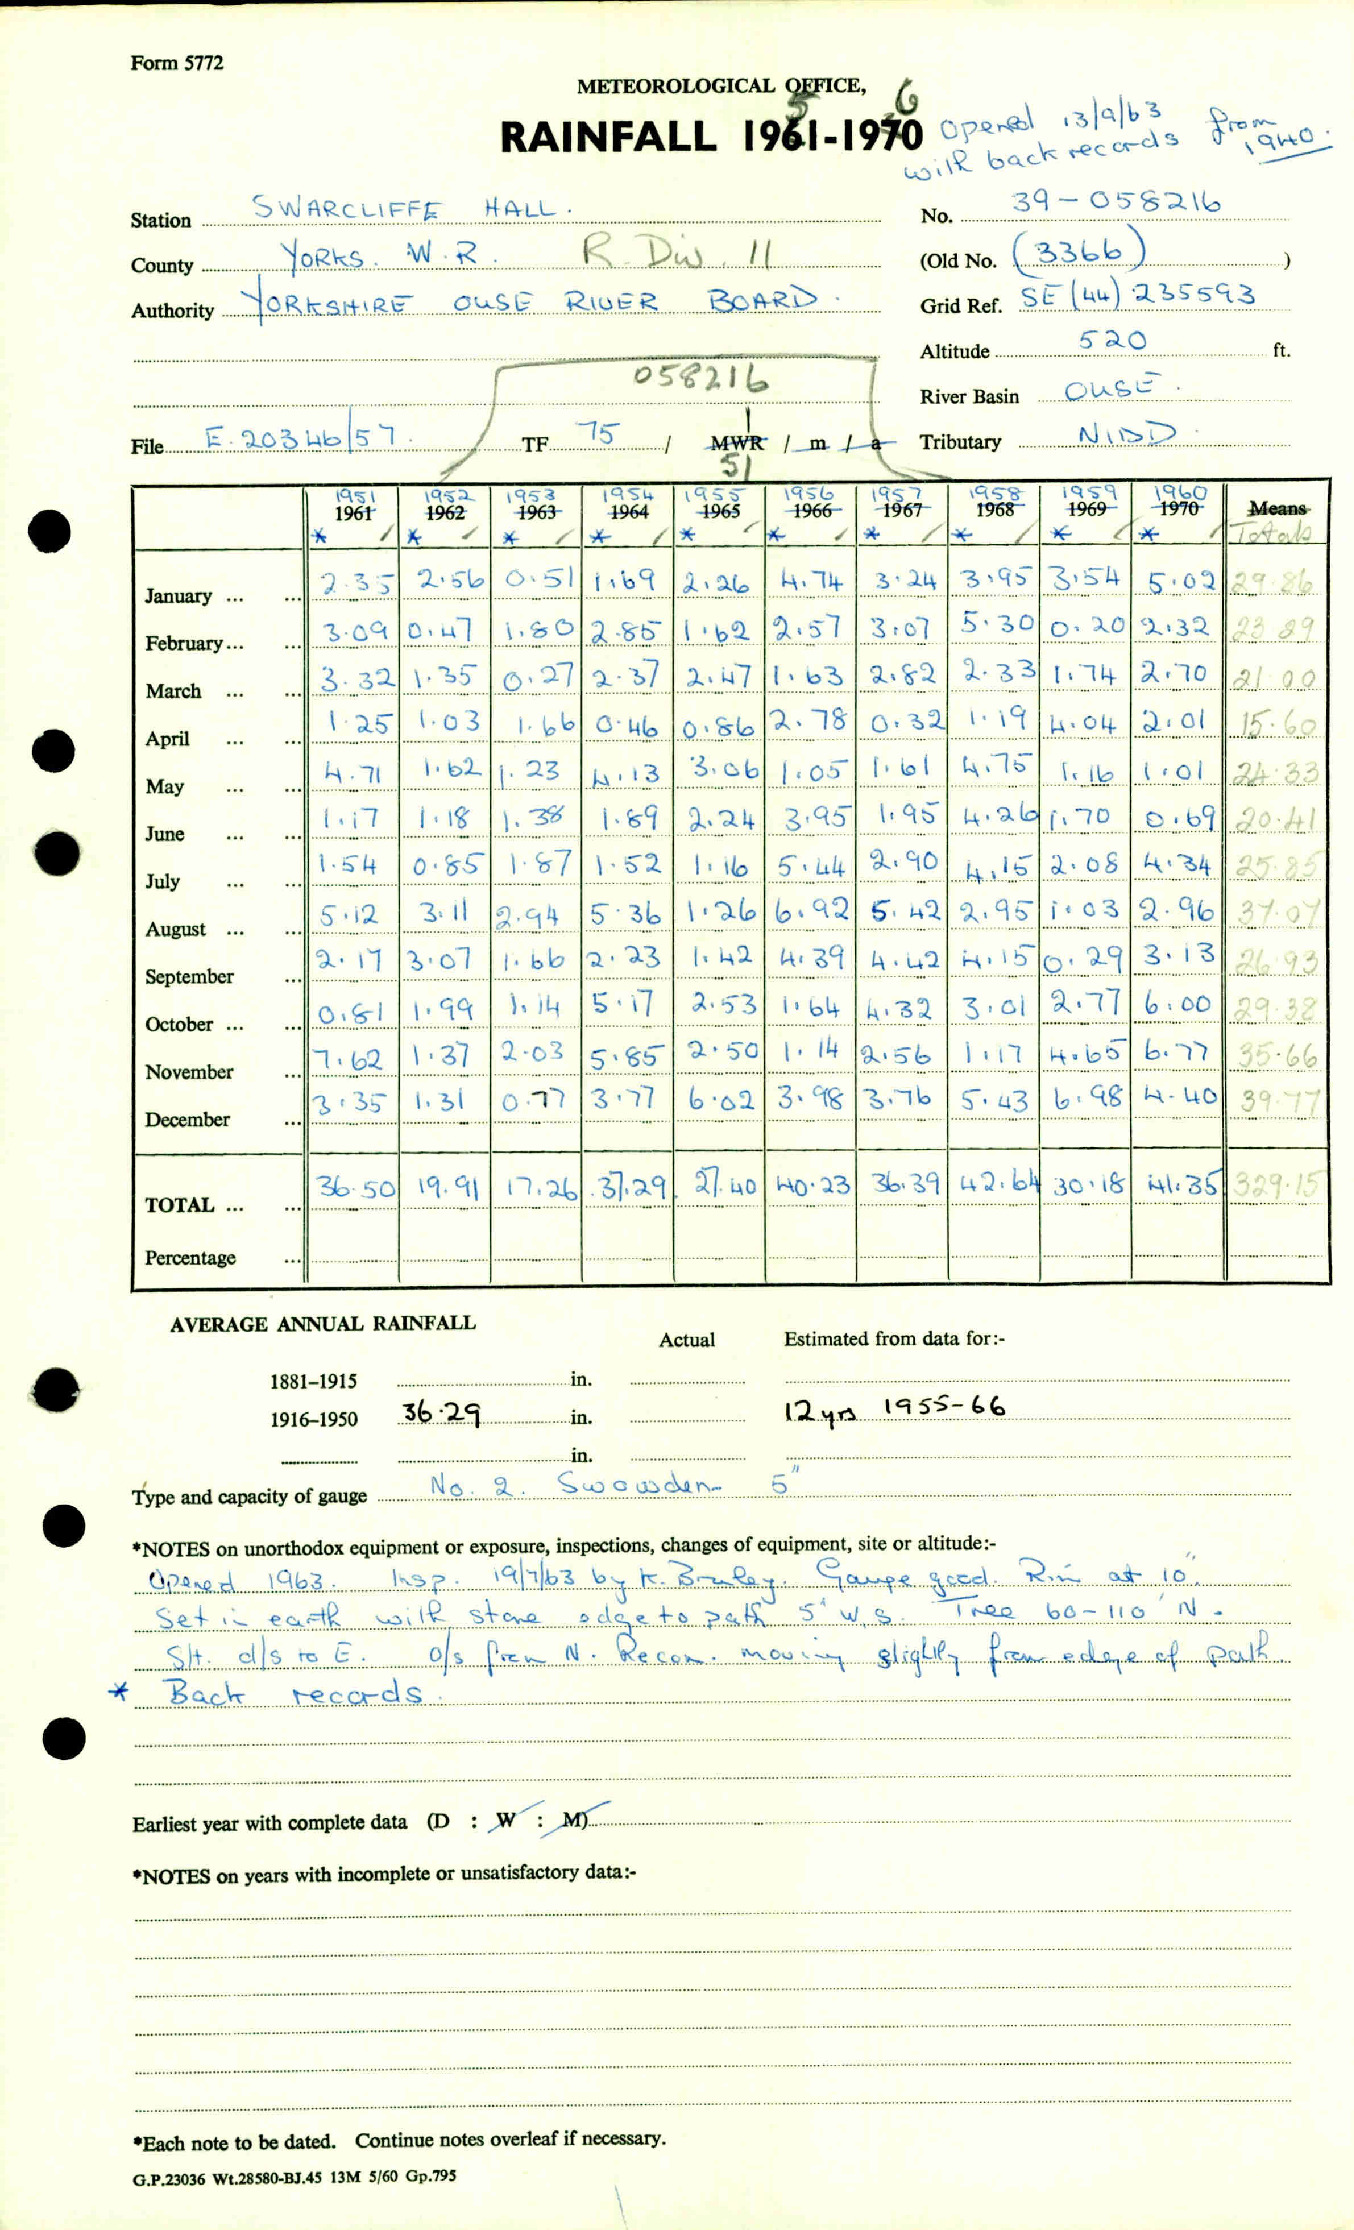 Form 5772
METEOROLOGICAL OFFICE,
RAINFALL 1951-1960
Opened 13/9/63 from
with back records 1940.
Station SWARCLIFFE HALL.
No. 39-058216
County YORKS. W.R. R. Div. 11
(Old No. (3366) )
Authority YORKSHIRE OUSE RIVER BOARD.
Grid Ref. SE (44) 235593
Altitude 520 ft.
058216
River Basin OUSE.
File E.20346/57. TF 75 / MWR / m / a
Tributary NIDD.
51
1951 1952 1953 1954 1955 1956 1957 1958 1959 1960
1961 1962 1963 1964 1965 1966 1967 1968 1969 1970 Means
* / * / * / * / * / * / * / * / * / * / Totals
January ... ... 2.35 2.56 0.51 1.69 2.26 4.74 3.24 3.95 3.54 5.02 29.86
February ... ... 3.09 0.47 1.80 2.85 1.62 2.57 3.07 5.30 0.20 2.32 23.29
March ... ... 3.32 1.35 0.27 2.37 2.47 1.63 2.82 2.33 1.74 2.70 21.00
April ... ... 1.25 1.03 1.66 0.46 0.86 2.78 0.32 1.19 4.04 2.01 15.60
May ... ... 4.71 1.62 1.23 4.13 3.06 1.05 1.61 4.75 1.16 1.01 24.33
June ... ... 1.17 1.18 1.38 1.89 2.24 3.95 1.95 4.26 1.70 0.69 20.41
July ... ... 1.54 0.85 1.87 1.52 1.16 5.44 2.90 4.15 2.08 4.34 25.85
August ... ... 5.12 3.11 2.94 5.36 1.26 6.92 5.42 2.95 1.03 2.96 37.07
September ... 2.17 3.07 1.66 2.23 1.42 4.39 4.42 4.15 0.29 3.13 26.93
October ... ... 0.81 1.99 1.14 5.17 2.53 1.64 4.32 3.01 2.77 6.00 29.38
November ... 7.62 1.37 2.03 5.85 2.50 1.14 2.56 1.17 4.65 6.77 35.66
December ... 3.35 1.31 0.77 3.77 6.02 3.98 3.76 5.43 6.98 4.40 39.77
TOTAL ... ... 36.50 19.91 17.26 37.29 27.40 40.23 36.39 42.64 30.18 41.35 329.15
Percentage ...
AVERAGE ANNUAL RAINFALL
Actual Estimated from data for:-
1881–1915 in.
1916–1950 36.29 in. 12 yrs 1955-66
in.
Type and capacity of gauge No. 2. Snowdon 5"
*NOTES on unorthodox equipment or exposure, inspections, changes of equipment, site or altitude:-
Opened 1963. Insp. 19/7/63 by K. Gauge good. Rim at 10".
Set in earth with stone edge to path 5' W.S. Tree 60-110' N.
Sh. d/s to E. o/s from N. Recom. moving slightly from edge of path.
* Back records.
Earliest year with complete data (D : W : M)
*NOTES on years with incomplete or unsatisfactory data:-
*Each note to be dated. Continue notes overleaf if necessary.
G.P.23036 Wt.28580-BJ.45 13M 5/60 Gp.795